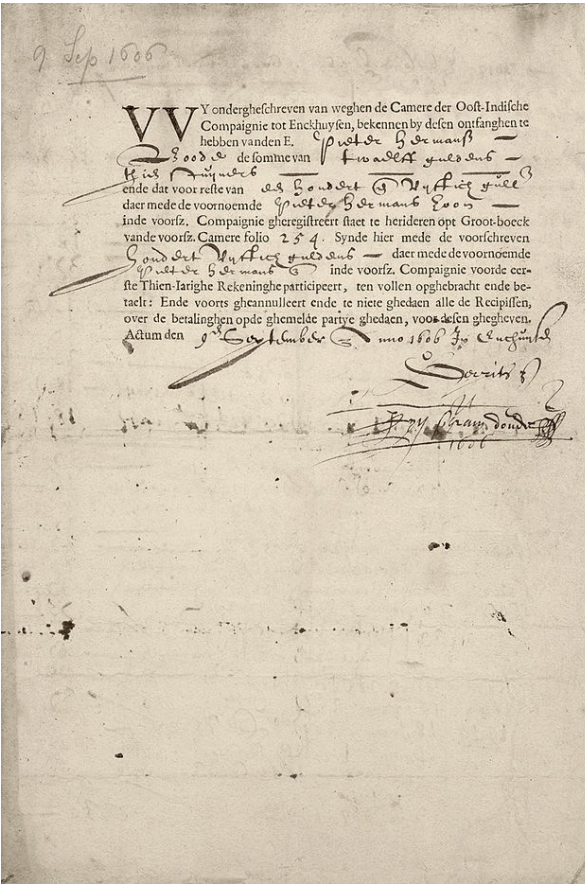 9 Sep 1606
VVY ondergheschreven van weghen de Camere der Oost-Indische
Compaignie tot Enckhuysen, bekennen by desen ontfanghen te
hebben vanden E. Pieter Hermansz
Boode de somme van twaelff guldens
thien stuyvers
ende dat voor reste van een hondert vyftich gull
daer mede de voornoemde Pieter Hermans
inde voorsz. Compaignie gheregistreert staet te herideren opt Groot-boeck
vande voorsz. Camere folio 254. Synde hier mede de voorschreven
hondert vyftich guldens daer mede de voornoemde
Pieter Hermans inde voorsz. Compaignie voorde eer-
ste Thien-Iarighe Rekeninghe participeert, ten vollen opghebracht ende be-
taelt: Ende voorts gheannulleert ende te niete ghedaen alle de Recipissen,
over de betalinghen opde ghemelde partye ghedaen, voor desen ghegheven.
Actum den 9 September Anno 1606
1606